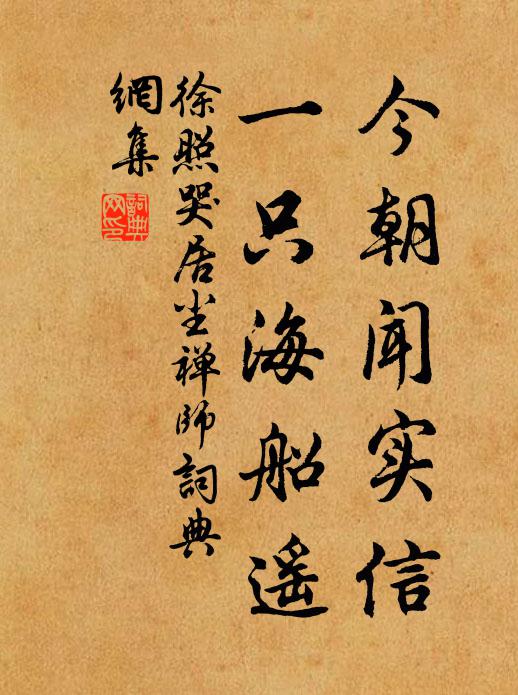 今朝闻实信
一只海船遥
徐照哭居尘禅师詞典
網集
詞典网印